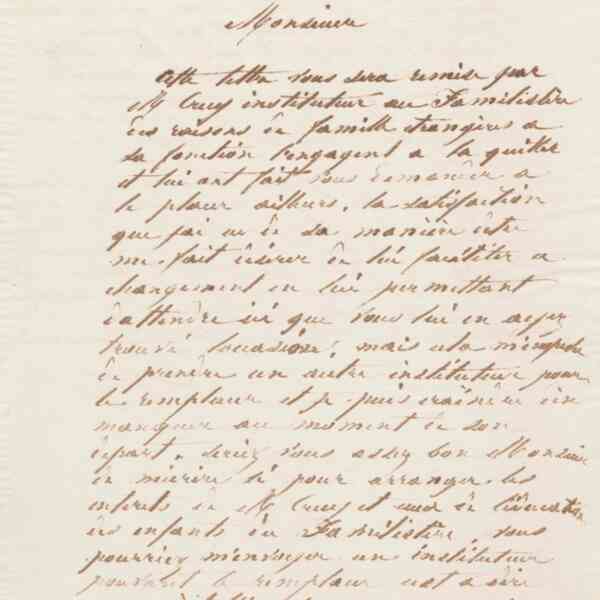 Monsieur
Cette lettre vous sera remise par
M Crecy instituteur au Familistère
des raisons de famille étrangères a
sa fonction l'engagent a la quitter
et lui ont fait vous demander a
le placer ailleurs, la satisfaction
que j'ai eu de sa manière d'être
me fait désirer de lui faciliter ce
changement en lui permettant
d'attendre ici que vous lui en ayez
trouvé l'occasion; mais cela m'empêche
de prendre un autre instituteur pour
le remplacer et je puis craindre d'en
manquer au moment de son
départ. seriez vous assez bon Monsieur
de m'écrire si pour arranger les
intérêts de M Crecy et ceux de l'éducation
des enfants du Familistère, vous
pourriez m'envoyer un instituteur
pouvant le remplacer c'est a dire